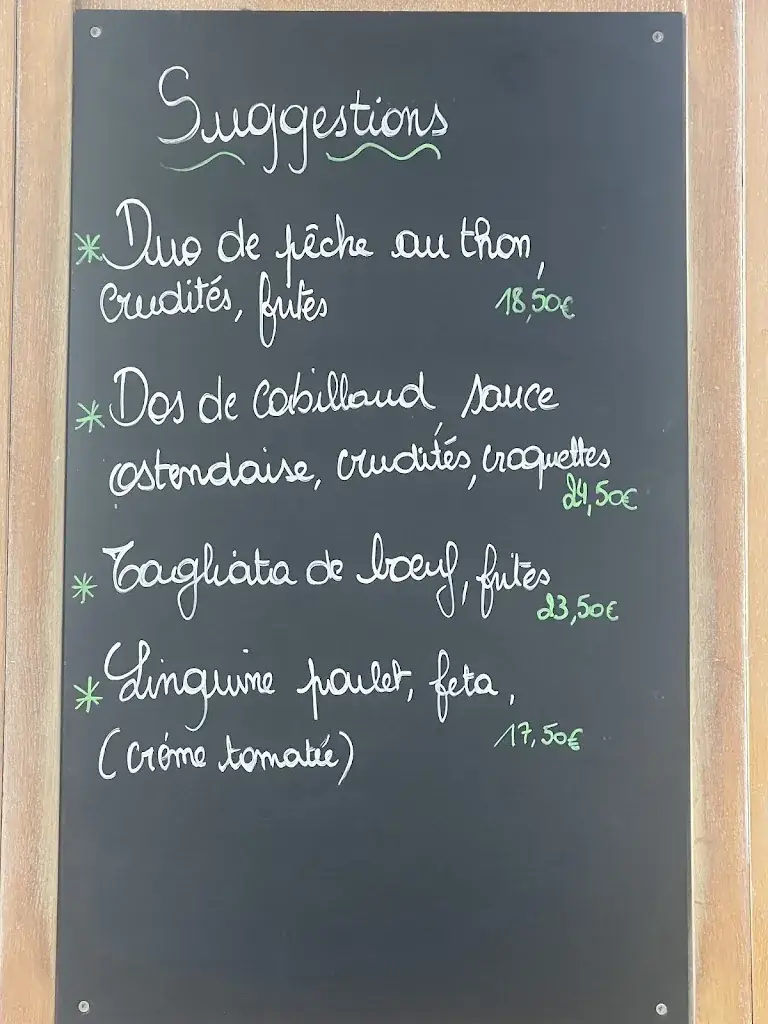 Suggestions
* Duo de pêche au thon,
crudités, frites 18,50€
* Dos de cabillaud, sauce
ostendaise, crudités, croquettes
24,50€
* Tagliata de boeuf, frites
23,50€
* Linguine poulet, feta,
17,50€
(crème tomatée)